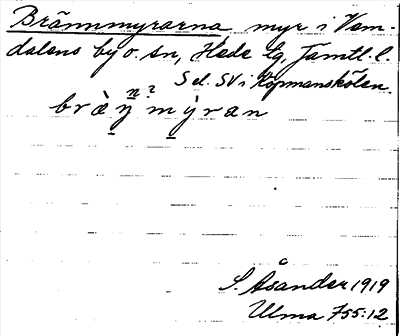 Brännmyrarna myr i Vem-
dalens by o. sn, Hede tg, Jämtl. l.
Sel. SV i Köpmanskölen.
n?
bràn̲ m̲ỳran
S. Åsander 1919
Ulma 755:12